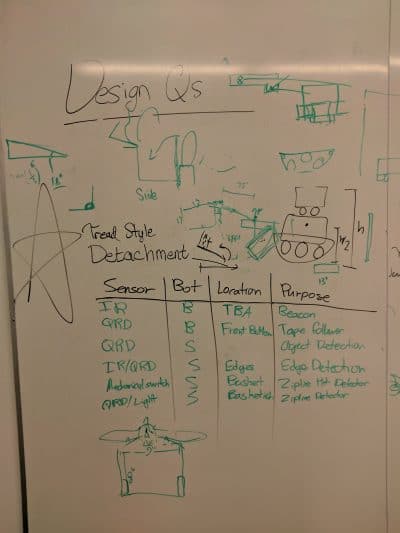 Design Qs
Side
Tread Style
Detachment
h
Sensor Bot Location Purpose
IR B TBA Beacon
QRD B Front Bottom Tape Follower
QRD S Object Detection
IR/QRD S Edges Edge Detection
Mechanical switch S Basket Zipline Hit Detector
QRD/Light S Basket Zipline Detector